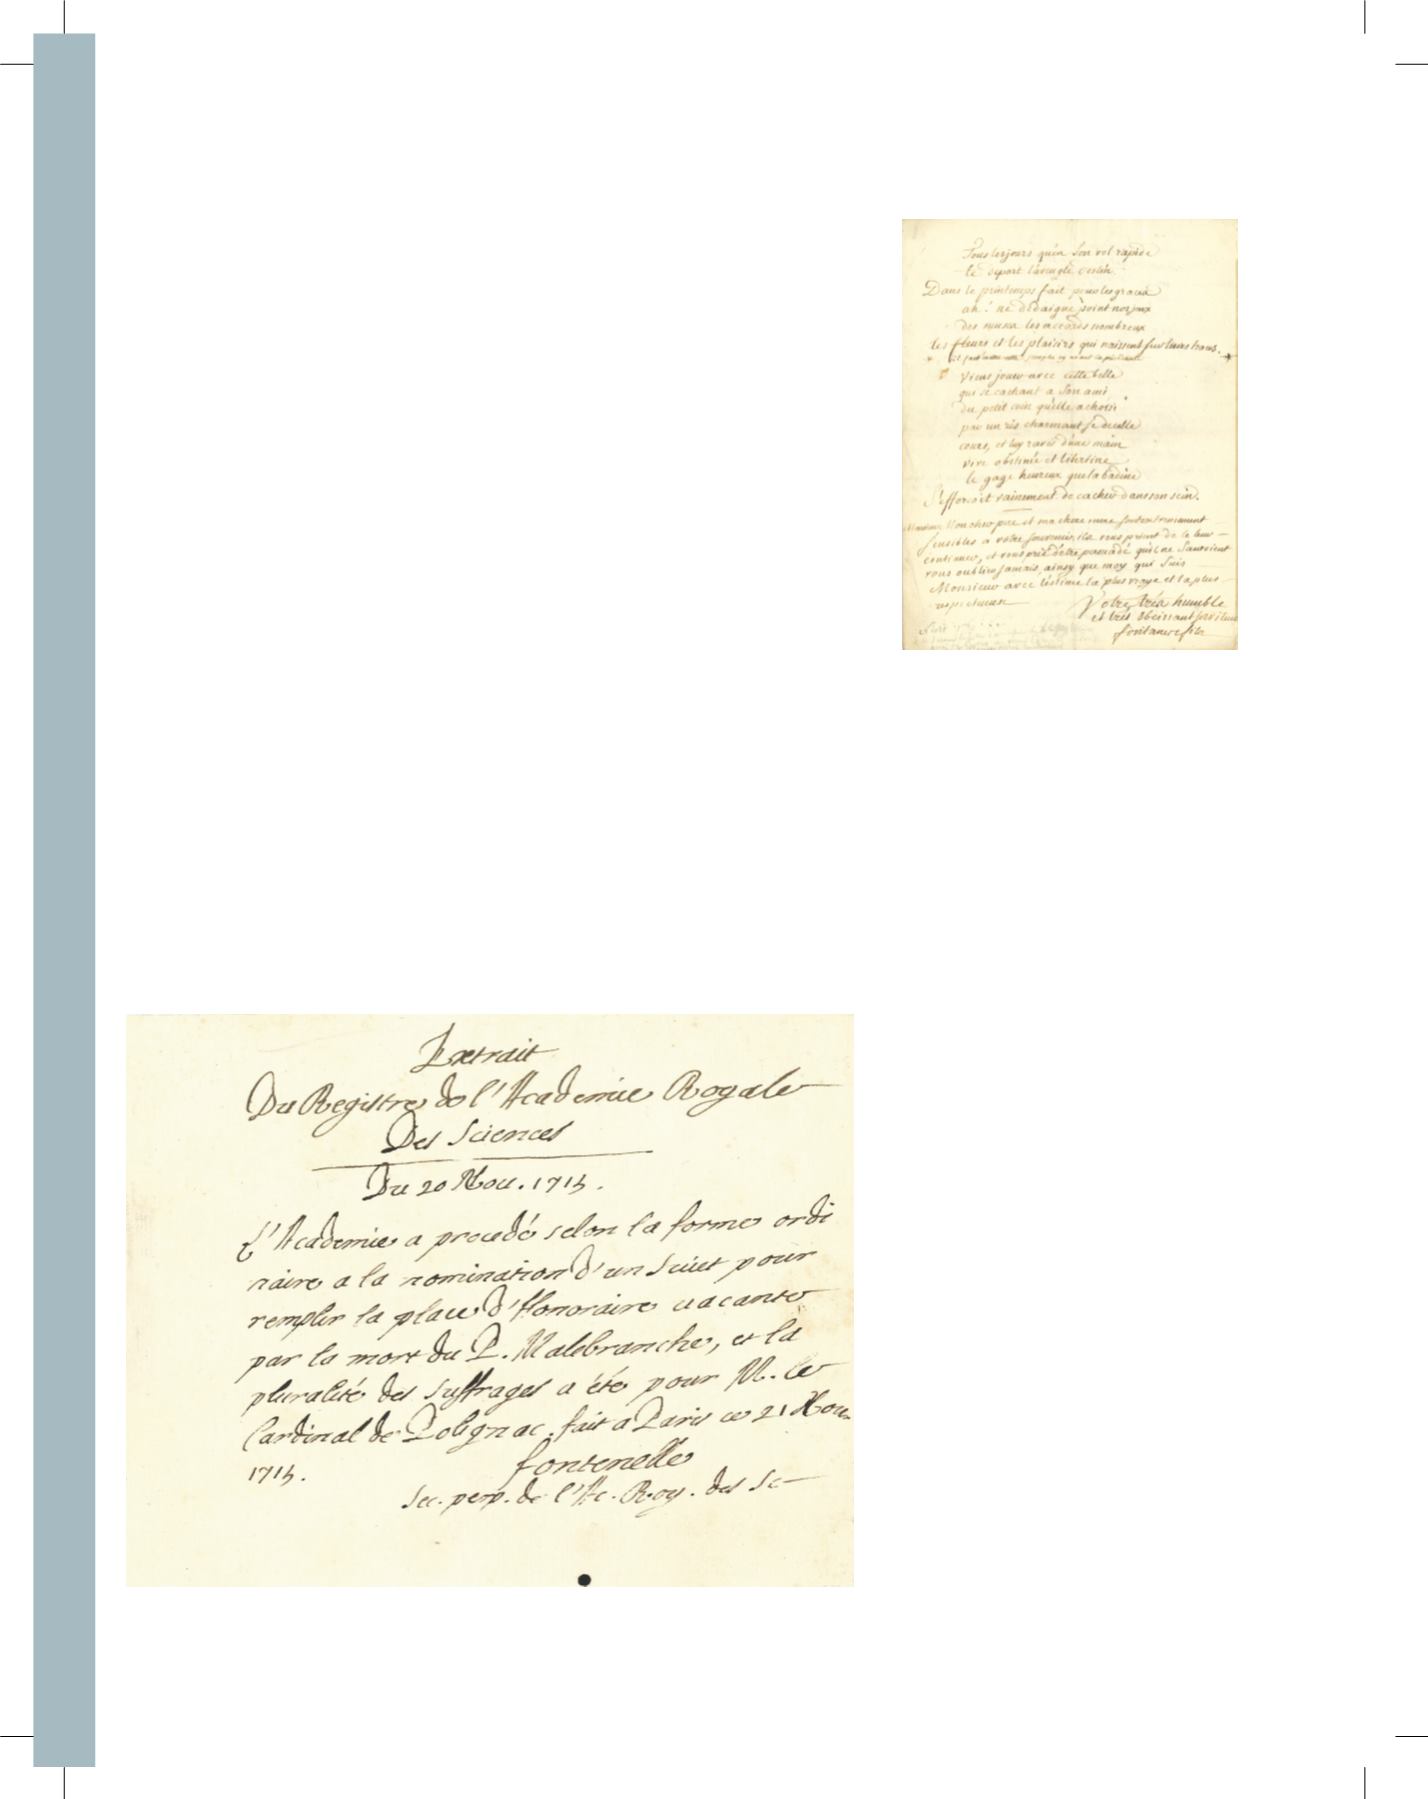 Tous les jours qu'en son vol rapide
le depart l'aveugle destin
Dans le printemps fait pour les graces
ah! ne dédaigne point nos jeux
des muses les accords nombreux
les fleurs et les plaisirs qui naissent sur leurs traces.
Viens jouer avec cette belle
qui se cachant a son ami
du petit coin qu'elle a choisi
par un ris charmant se decelle
cours, et luy ravis d'une main
vive obstinée et libertine
le gage heureux que la badine
S'efforçoit vainement de cacher dans son sein.
Mon cher pere et ma chere mere sont extremement
sensibles a votre souvenir, ils vous prient de le leur
continuer, et vous prie d'etre persuadé qu'il ne sauroient
vous oublier jamais, ainsy que moy qui suis
Monsieur avec l'estime la plus vraye et la plus
respectueuse
Votre très humble
et très obeissant serviteur
fontanes fils
Extrait
Du Registre de l'Academie Royale
Des Sciences
Du 20 Nou. 1715.
L'Academie a procedé selon la forme ordi
naire a la nomination d'un suiet pour
remplir la place d'Honoraire uacante
par la mort du P. Malebranche, et la
pluralité des suffrages a été pour M. le
Cardinal de Polignac. fait a Paris ce 21 Nou.
1715.
fontenelle
Sec. perp. de l'Ac. Roy. des Sc